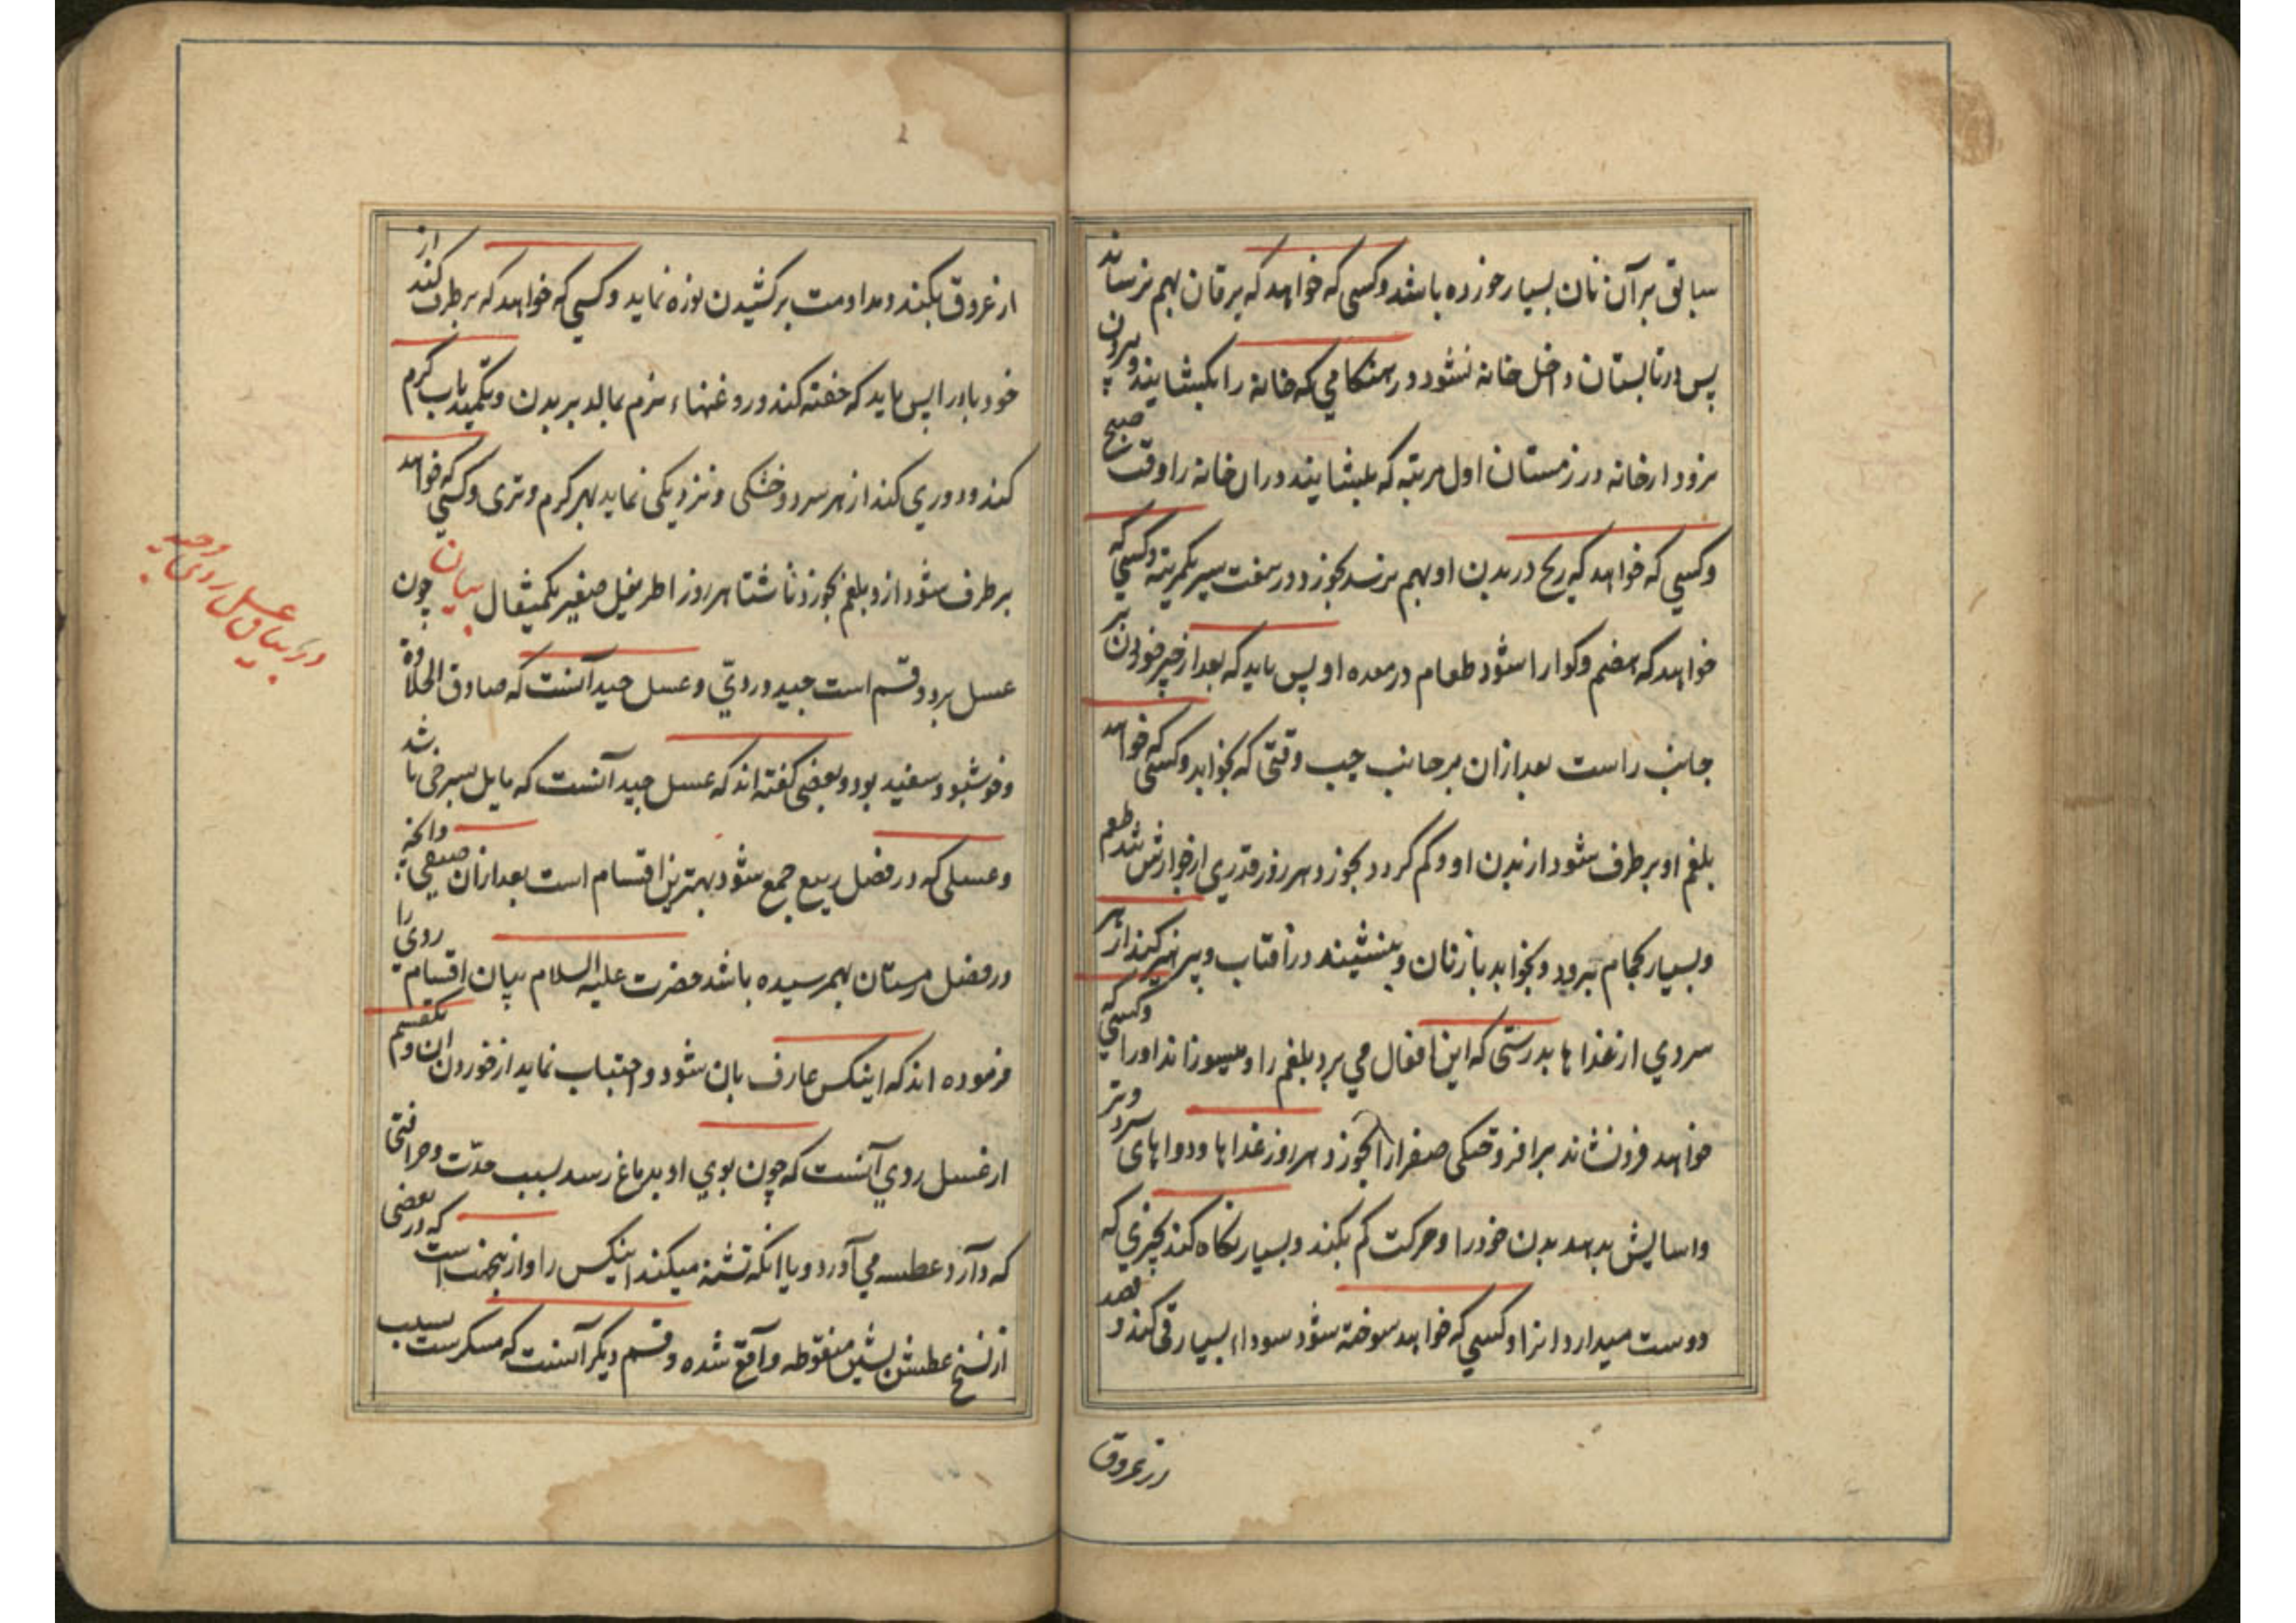 سابق بر آن نان بسیار خورده باشد و کسی که خواهد که یرقان بهم نرساند
پس در تابستان داخل خانه نشود در هنکامی که خانه را بکشایند و بیرون
نرود از خانه در زمستان اول مرتبه که بکشایند در ان خانه را وقت صبح
و کسی که خواهد که ریح در بدن او بهم نرسد بخورد در هفت سیر یکمرتبه و کسی که
خواهد که هضم و کوارا شود طعام در معده او پس باید که بعد از چیز خوردن بر
جانب راست بعد از ان بر جانب چپ وقتی که بخوابد و کسی که خواهد
بلغم او بر طرف شود از بدن او و کم کردد بخورد هر روز قدری از جوارش تند طعم
و بسیار بحمام برود و بخوابد با زنان و بنشیند در آفتاب و پرهیز کند از هر
سردی از غذاها بدرستی که این افعال می برد بلغم را و میسوزاند او را و کسی که
خواهد فرو نشاند برافروختکی صفرا را بخورد هر روز غذاها و دواهای سرد و تر
و اسایش بدهد بدن خود را و حرکت کم بکند و بسیار نکاه کند بچیزی که
دوست میدارد انرا و کسی که خواهد سوخته شود سودا، بسیار قی کند و فصد
از عروق
از عروق بکند و مداومت بر کشیدن نوره نماید و کسی که خواهد که بر طرف کند از
خود باد را پس باید که حقنه کند و روغنهاء نرم بمالد بر بدن و تکمید باب کرم
کند و دوری کند از هر سرد و خشکی و نزدیکی نماید بهر کرم و تری و کسی که خواهد
بر طرف شود ازو بلغم بخورد ناشتا هر روز اطریفل صغیر یکمثقال بیان چون
عسل بر دو قسم است جید و ردیّ و عسل جید آنست که صادق الحلاوة
و خوشبو و سفید بود و بعضی کفته اند که عسل جید آنست که مایل بسرخی باشد
و عسلی که در فصل ربیع جمع شود بهترین اقسام است بعد از ان صیفی و انچه
در فصل زمستان بهم رسیده باشد حضرت علیه السلام بیان اقسام ردی را
فرموده اند که اینکس عارف بان شود و اجتناب نماید از خوردن ان و یکقسم
از عسل ردی آنست که چون بوی او بدماغ رسد بسبب حدّت و حرافتی
که دارد عطسه می آورد و یا انکه تشنه میکند اینکس را و از اینجهت است که در بعضی
از نسخ عطش بشین منقوطه واقع شده و قسم دیکر آنست که مسکرست بسبب
در بیان عسل ردی و جید